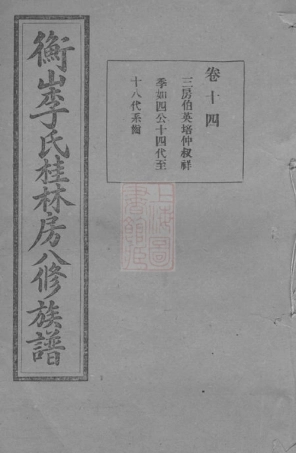 卷十四
三房伯英培仲叔祥
季如四公十四代至
十八代系圖
衡山李氏桂林房八修族譜